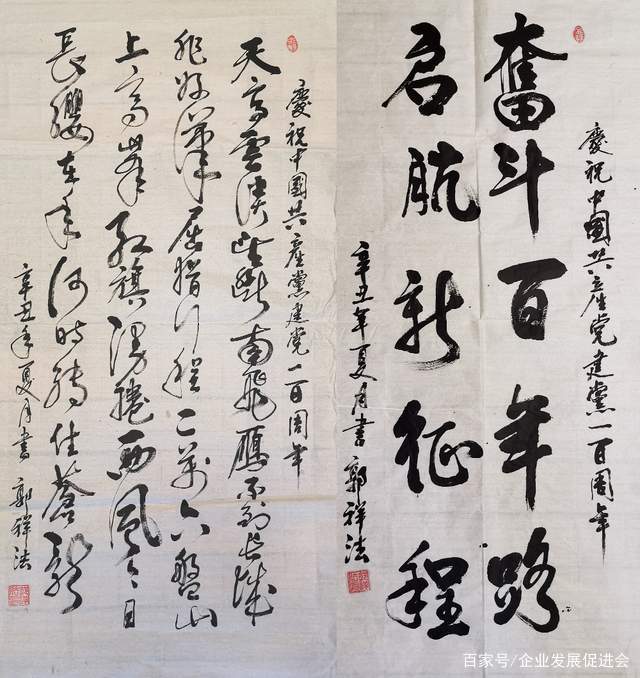 慶祝中國共産党建黨一百周年
奮斗百年路
启航新征程
辛丑年夏月書 郭祥法
慶祝中國共産黨建党一百周年
天高雲淡望斷南飛雁不到長城
非好漢屈指行程二萬六盤山
上高峰紅旗漫捲西風今日
長纓在手何時縛住蒼龍
辛丑年夏月書 郭祥法
百家号/企业发展促进会